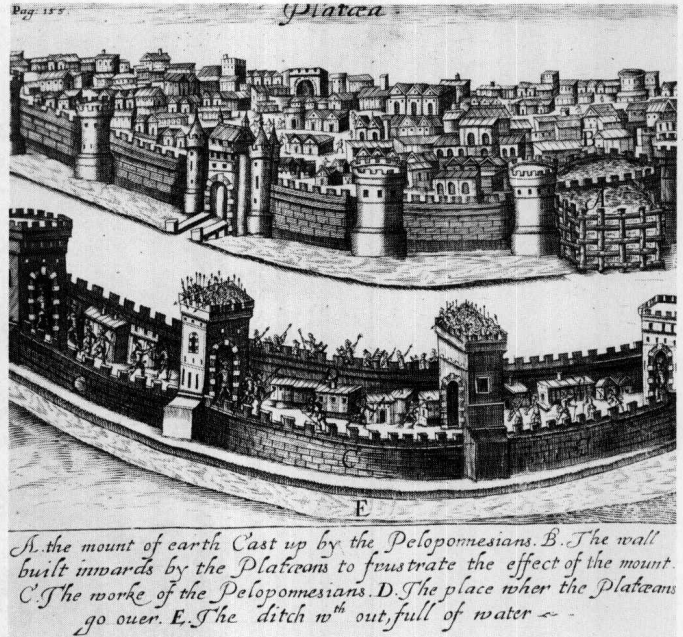 Pag. 155
Platæa
A
D
C
C
E
A. the mount of earth Cast up by the Peloponnesians. B. The wall
built inwards by the Platæans to frustrate the effect of the mount.
C. The worke of the Peloponnesians. D. The place wher the Platæans
go ouer. E. The ditch wth out, full of water